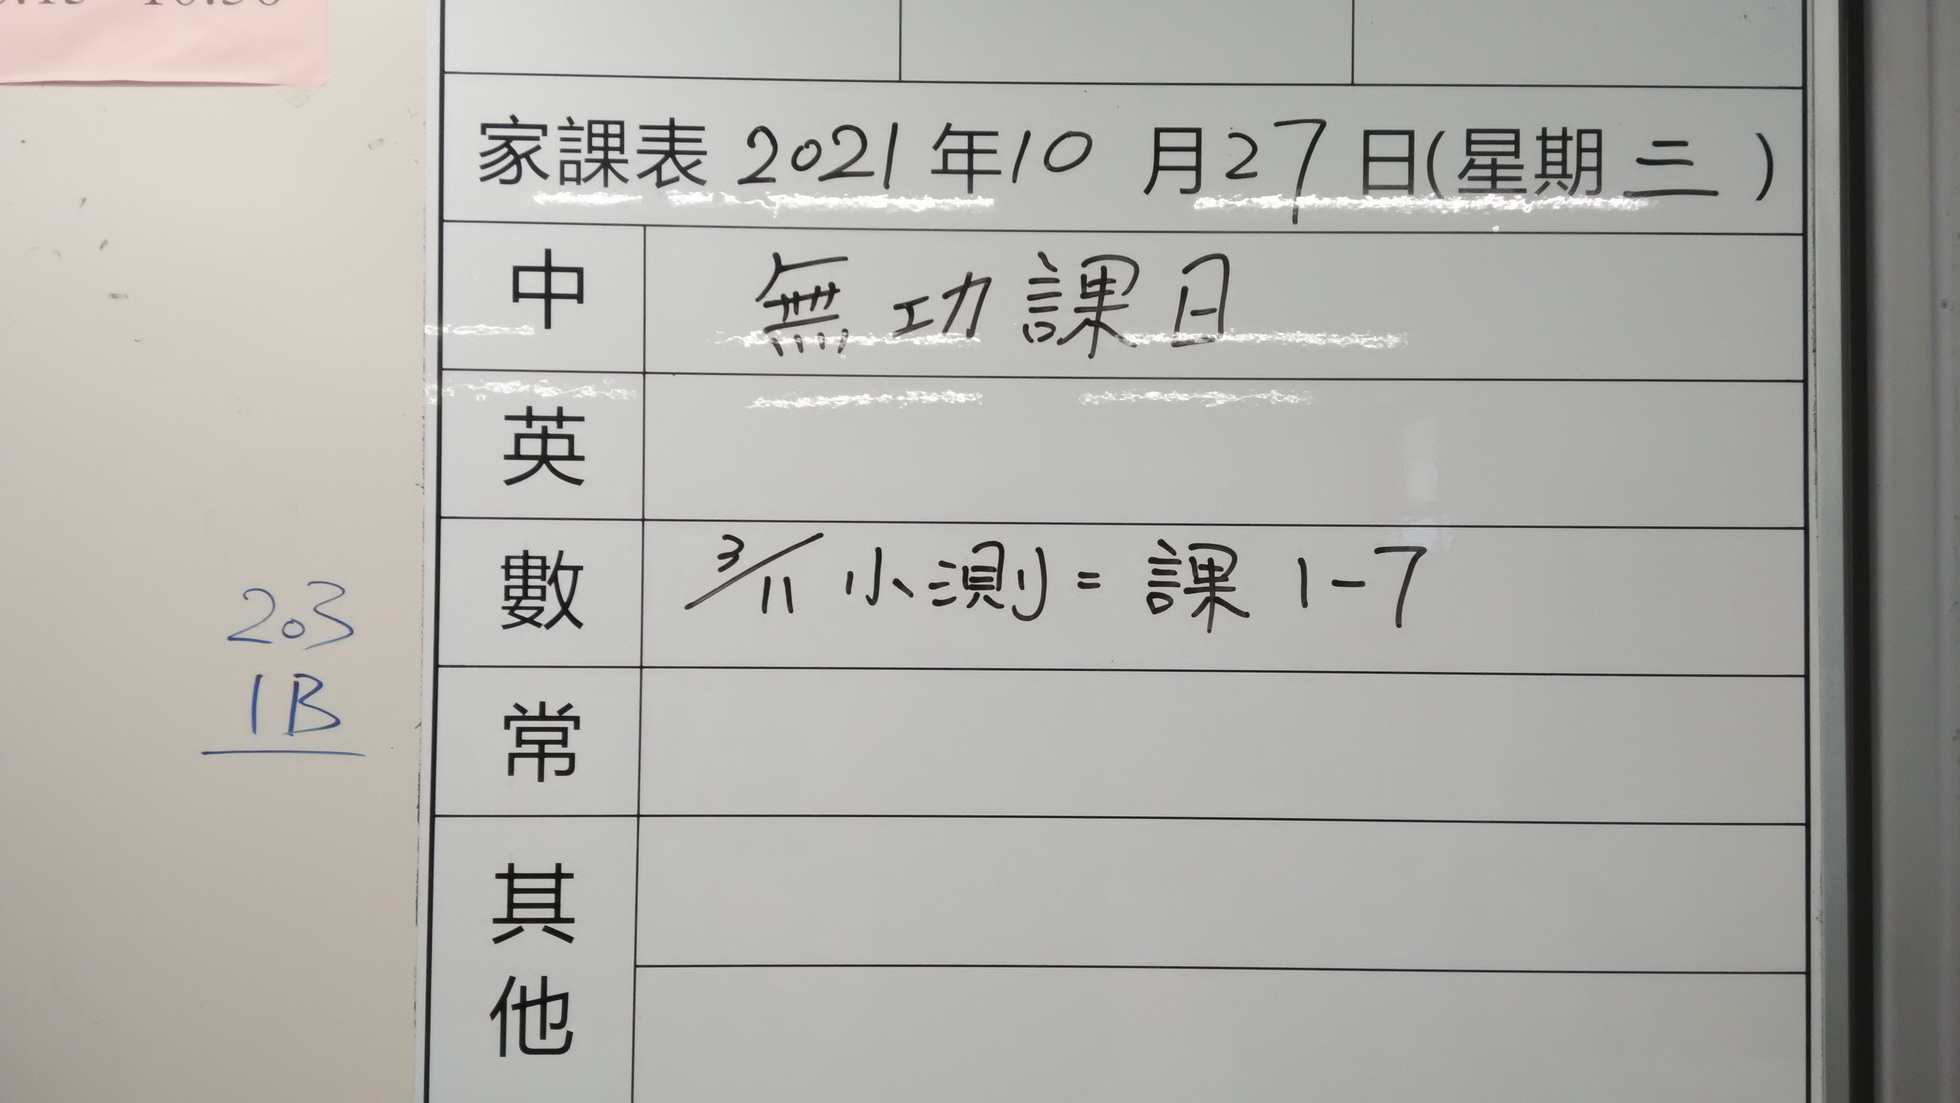 家課表 2021 年 10 月 27 日(星期 三 )
中 無功課日
英
數 3/11 小測= 課 1-7
常
其
他
203
1B